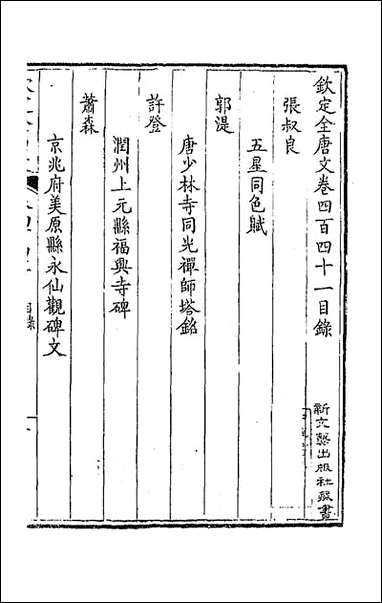 欽定全唐文卷四百四十一目錄
張叔良
五星同色賦
郭湜
唐少林寺同光禪師塔銘
許登
潤州上元縣福興寺碑
蕭森
京兆府美原縣永仙觀碑文
目錄
新文豐出版社發書